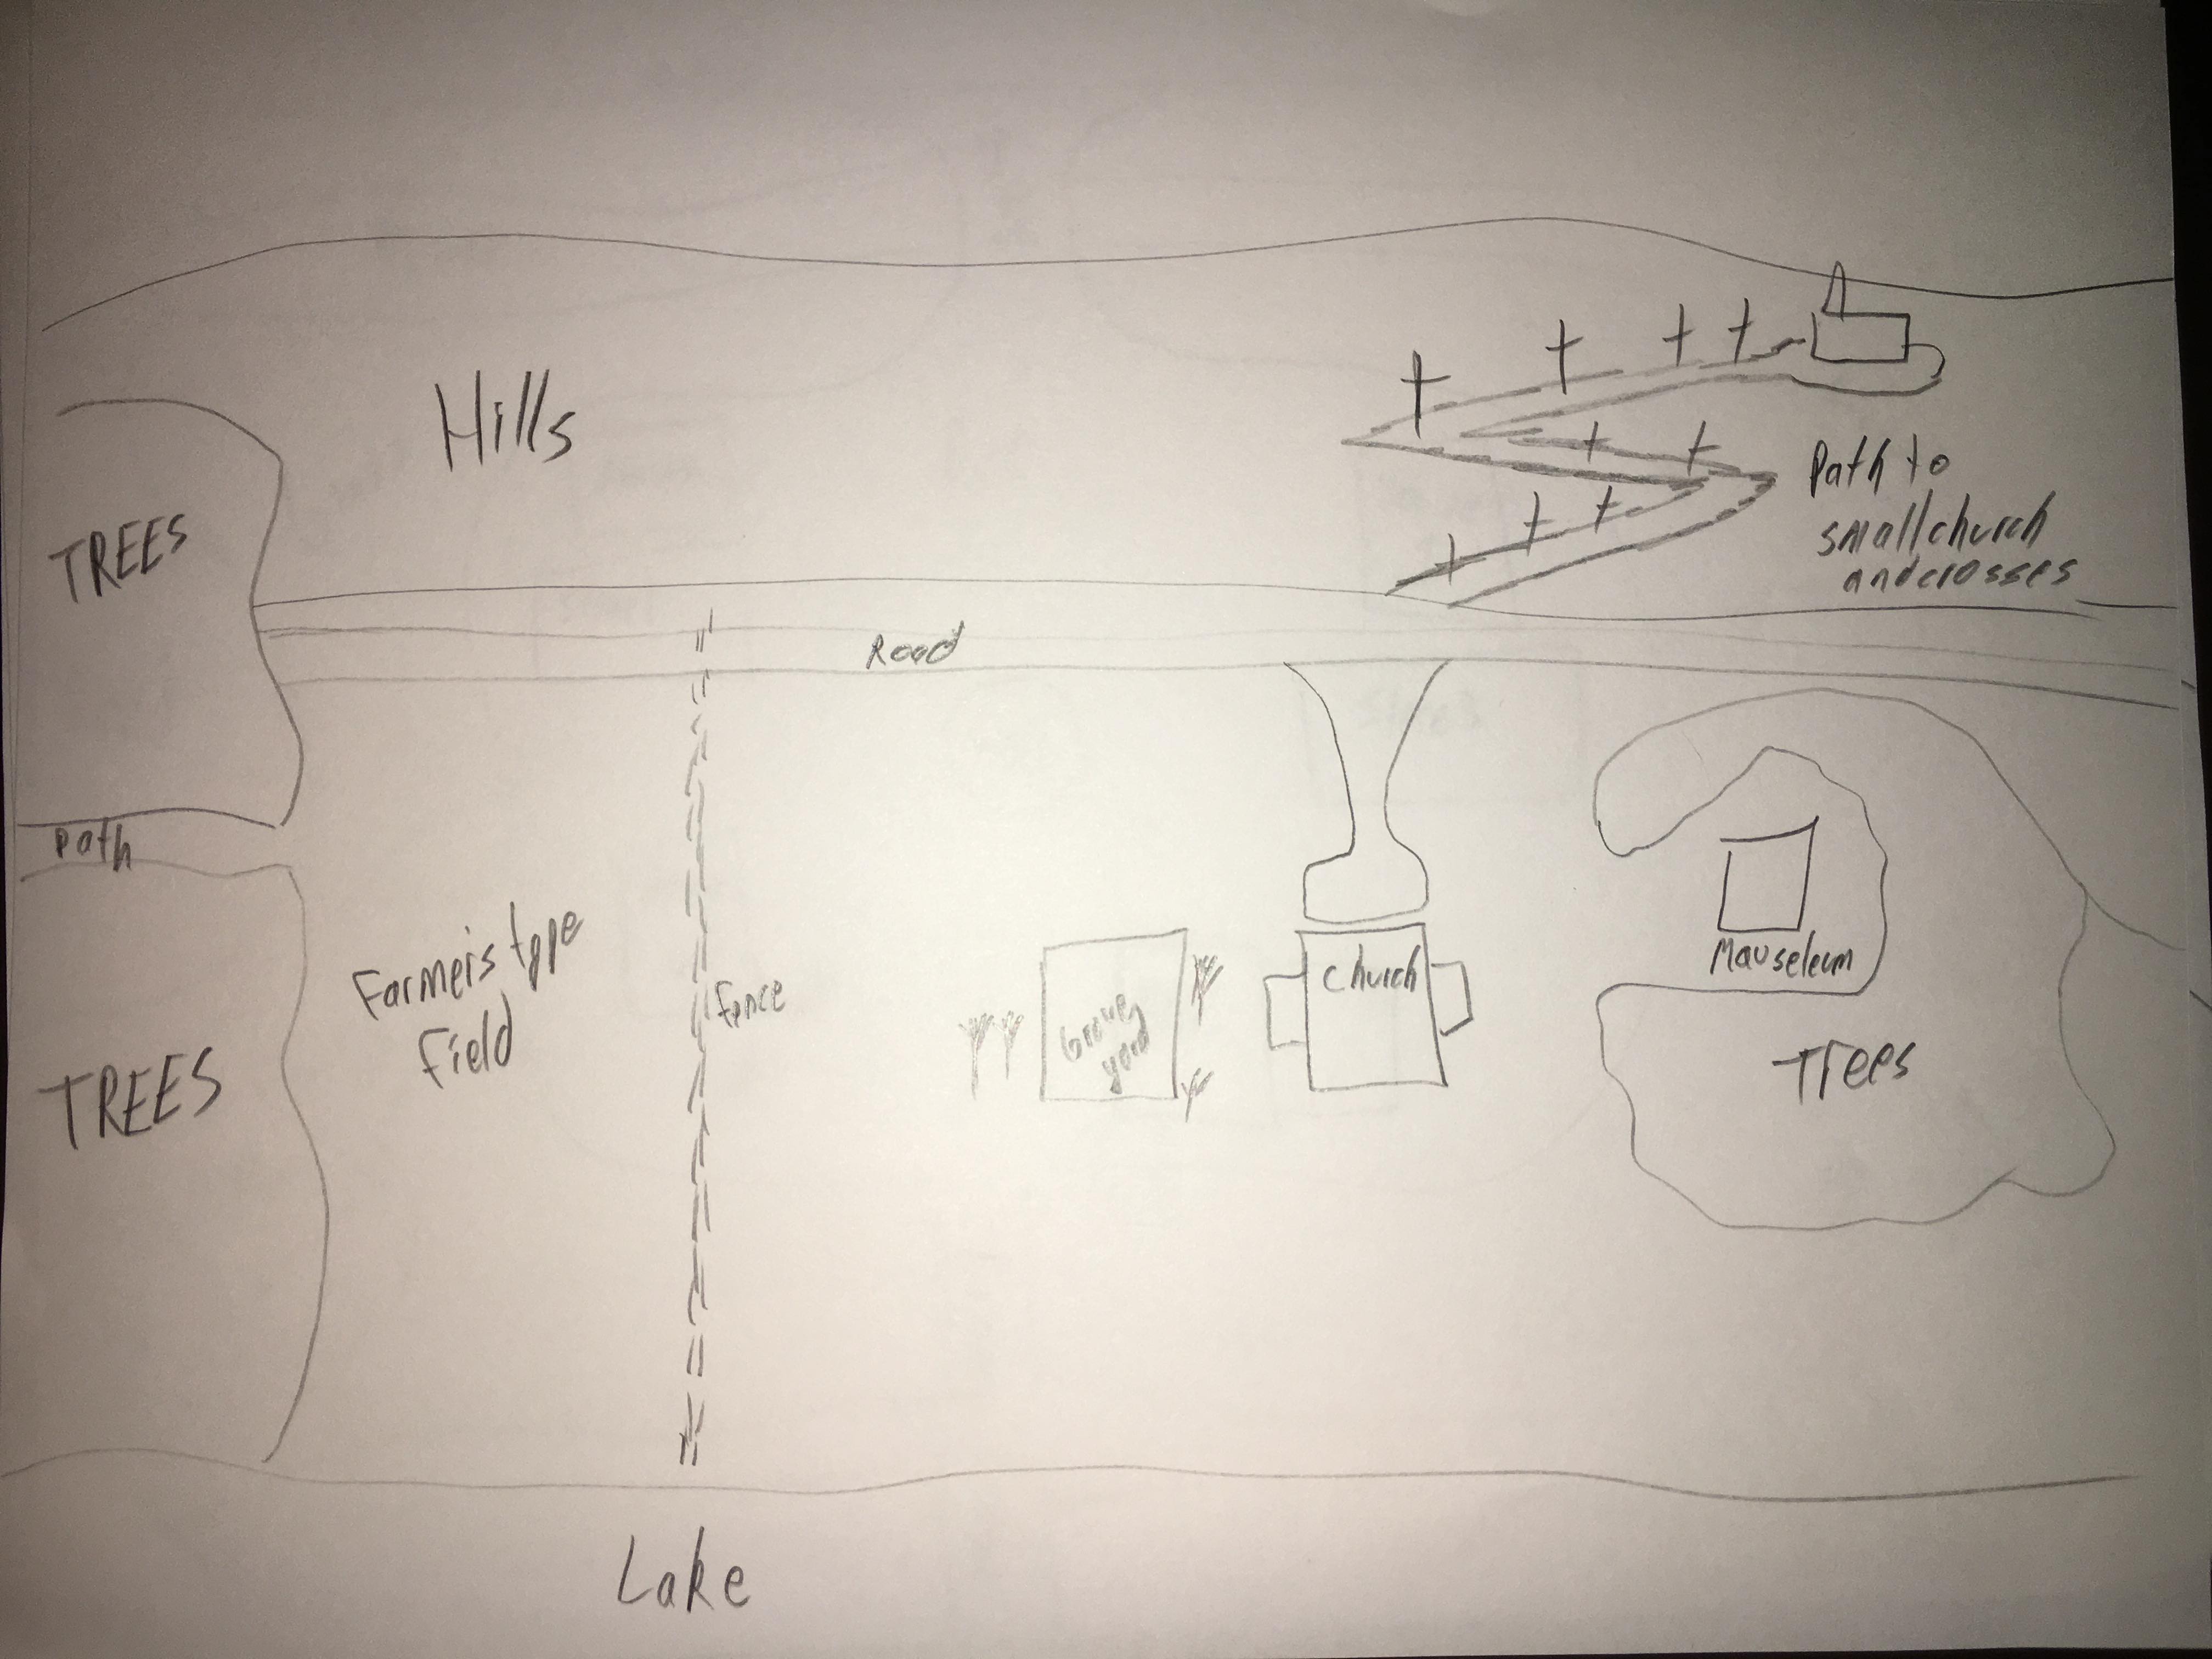 Hills
Path to
small church
and crosses
TREES
Road
Path
Farmers type
field
fence
Grave
yard
Church
Mauseleum
Trees
TREES
Lake